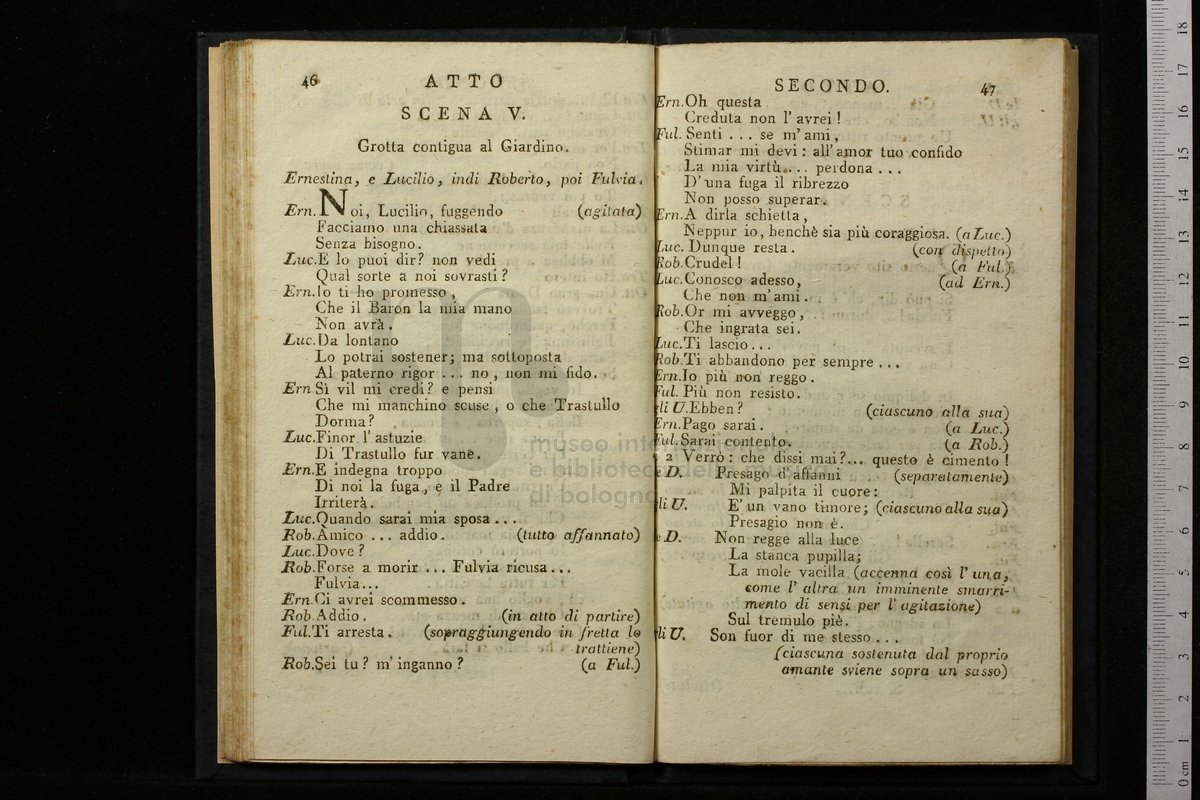 46
ATTO
SCENA V.
Grotta contigua al Giardino.
Ernestina, e Lucilio, indi Roberto, poi Fulvia.
Ern. Noi, Lucilio, fuggendo (agitata)
Facciamo una chiassata
Senza bisogno.
Luc. E lo puoi dir? non vedi
Qual sorte a noi sovrasti?
Ern. Io ti ho promesso,
Che il Baron la mia mano
Non avrà.
Luc. Da lontano
Lo potrai sostener; ma sottoposta
Al paterno rigor ... no, non mi fido.
Ern Sì vil mi credi? e pensi
Che mi manchino scuse, o che Trastullo
Dorma?
Luc. Finor l' astuzie
Di Trastullo fur vane.
Ern. E indegna troppo
Di noi la fuga, e il Padre
Irriterà.
Luc. Quando sarai mia sposa ...
Rob. Amico ... addio. (tutto affannato)
Luc. Dove?
Rob. Forse a morir ... Fulvia ricusa ...
Fulvia...
Ern. Ci avrei scommesso.
Rob Addio. (in atto di partire)
Ful. Ti arresta. (sopraggiungendo in fretta lo
trattiene)
Rob. Sei tu? m' inganno? (a Ful.)
SECONDO.
47
Ern. Oh questa
Creduta non l' avrei!
Ful. Senti ... se m' ami,
Stimar mi devi: all' amor tuo confido
La mia virtù ... perdona ...
D' una fuga il ribrezzo
Non posso superar.
Ern. A dirla schietta,
Neppur io, benchè sia più coraggiosa. (a Luc.)
Luc. Dunque resta. (con dispetto)
Rob. Crudel! (a Ful.)
Luc. Conosco adesso, (ad Ern.)
Che non m' ami.
Rob. Or mi avveggo,
Che ingrata sei.
Luc. Ti lascio...
Rob. Ti abbandono per sempre ...
Ern. Io più non reggo.
Ful. Più non resisto.
li U. Ebben? (ciascuno alla sua)
Ern. Pago sarai. (a Luc.)
Ful. Sarai contento. (a Rob.)
a 2 Verrò: che dissi mai?... questo è cimento!
e D. Presago d' affanni (separatamente)
Mi palpita il cuore:
li U. E' un vano timore; (ciascuno alla sua)
Presagio non è.
e D. Non regge alla luce
La stanca pupilla;
La mole vacilla (accenna così l' una,
come l' altra un imminente smarri-
mento di sensi per l' agitazione)
Sul tremulo piè.
li U. Son fuor di me stesso ...
(ciascuna sostenuta dal proprio
amante sviene sopra un sasso)
museo internazionale
e biblioteca della musica
di bologna
0 cm 1 2 3 4 5 6 7 8 9 10 11 12 13 14 15 16 17 18